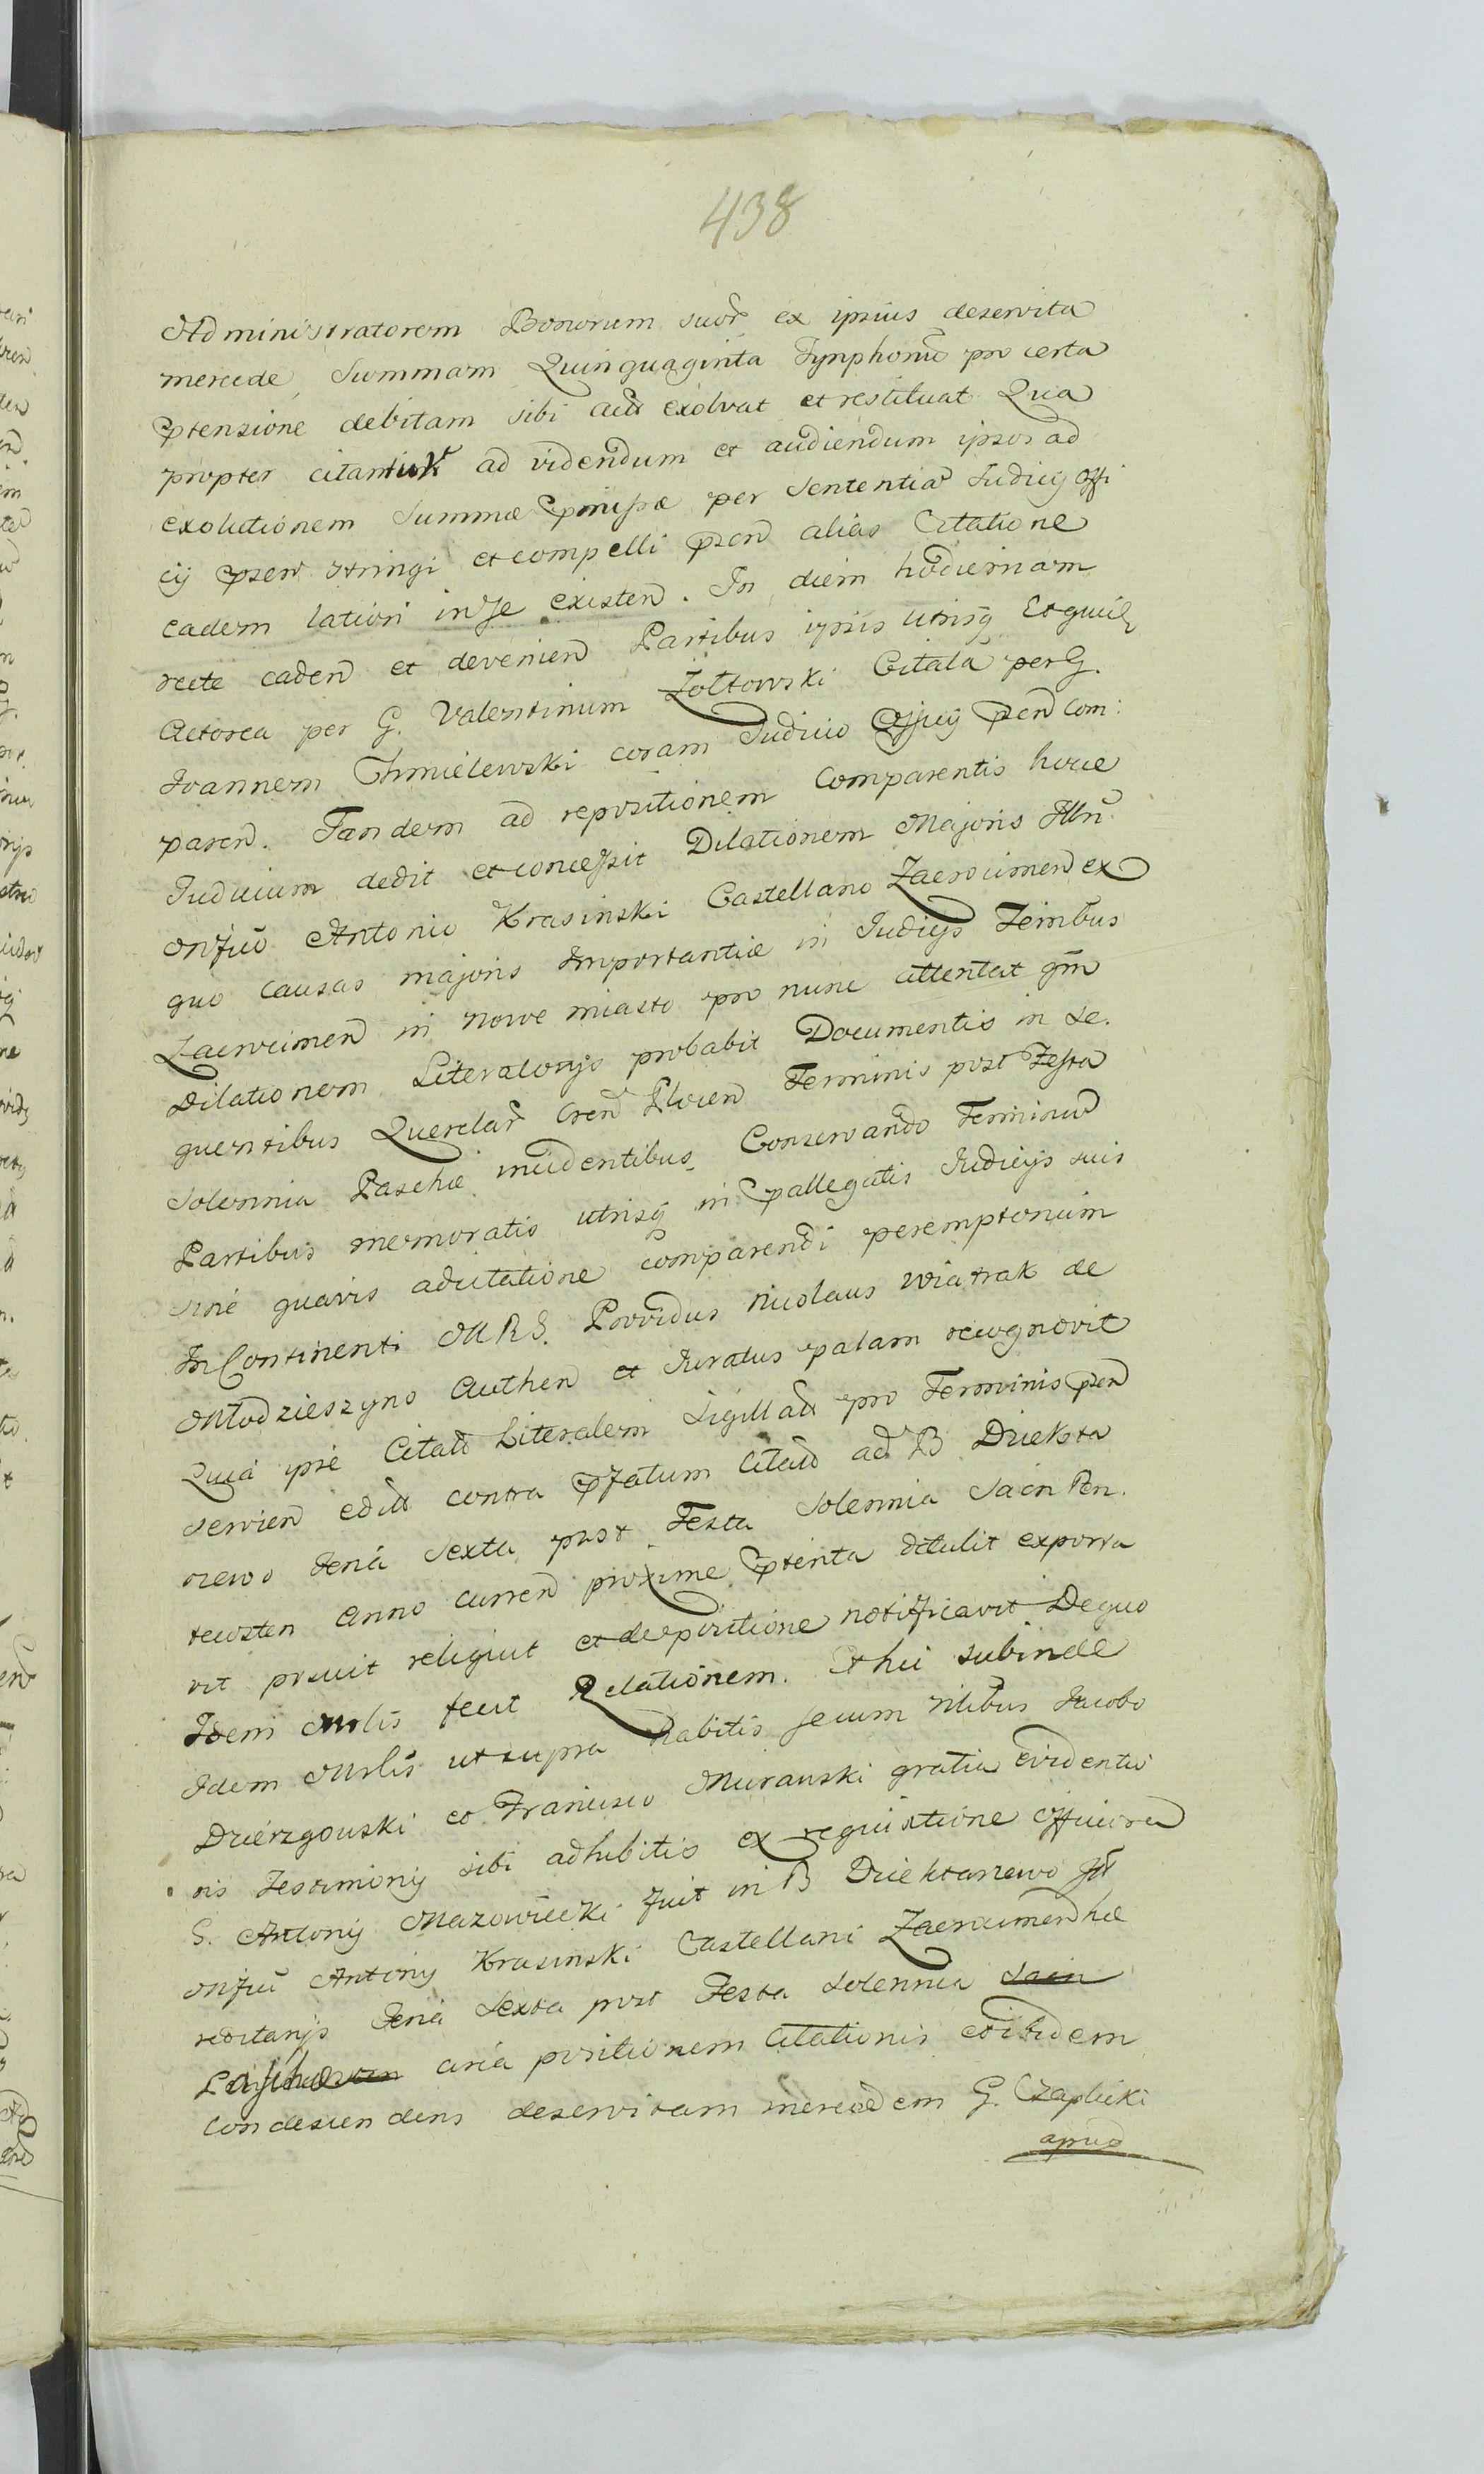 438
Administratorem Bonorum suor̃ ex ipsius deservita
mercede, Summam Quinquaginta Tynphonũ pro certa
ptensione debitam sibi exolvat et restituat Qua
propter citantur ad videndum et audiendum ipsos ad
exolutionem Summæ pmissæ per Sententiã Judicij offi
cij psen stringi et compelli psen alias Citatione
eadem latiori in se existen. In diem hodiernam
recte caden et devenien Partibus ipsis utrisq
Actorea per G. Valentinum Zołtowski Citata per G.
Joannem Chmielewski coram Judicio Officij psen com:
paren. Tandem ad repositionem Comparentis hocce
Judicium dedit et concessit Dilationem Majoris Illri
Mfico Antonio Krasinski Castellano Zacrocimen ex
quo causas majoris Importantiæ in Judicijs Temibus
Zacrocimen in Nowe miasto pro nunc attentat qm
Dilationem Literatorijs probabit Documentis in Se.
quentibus Querelar̃ Cren Plocen Terminis post Festa
Solennia Paschæ incidentibus Conservando Terminum
Partibus memoratis utrisq in pallegatis Judicijs suis
sine quavis adcitatione comparendi peremptorium
In Continenti M R S. Providus Nicolaus Wiatrak de
Młodzieszyno Authen et Juratus palam recognovit
Quia ipse Citatõ Literalem Sigillatã pro Terminis psen
servien edita contra pfatum Citatũ ad B Dziekta
rzewo Feria Sexta post Festa Solennia Sacn Pen.
tecosten Anno curren proxime pterita detulit exporta
vit posuit reliquit et de positione notificavit De quo
Idem Mrlis fecit Relationem. Et hic subinde
Idem Mrlis ut supra habitis secum nlibus Jacobo
Dzierzgowski et Francisco Murawski gratia evidentio
ris Testimonij sibi adhibitis ex requisitione officiosa
G. Antonij Mazowiecki fuit in B Dziektarzewo
Mfici Antonij Krasinski Castellani Zacrocimen hæ
reditarijs Feria Sexta post Festa Solennia Sacn
Paschæ circa positionem Citationis et ibidem
condescendens deservitam mercedem G. Czaplicki
apud